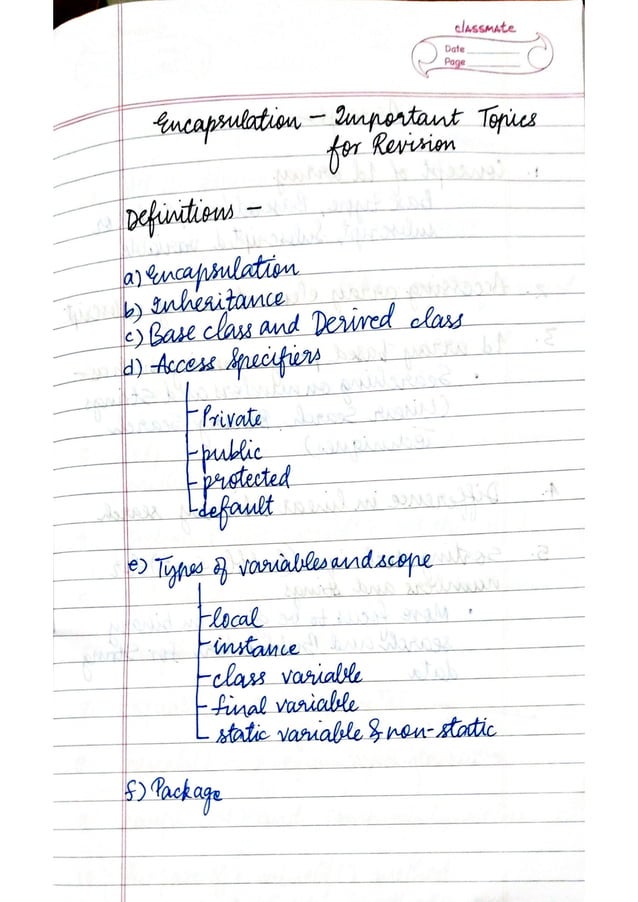 classmate
Date
Page
Encapsulation - Important Topics
for Revision
Definitions -
a) Encapsulation
b) Inheritance
c) Base class and Derived class
d) Access Specifiers
Private
public
protected
default
e) Types of variables and scope
local
instance
class variable
final variable
static variable & non-static
f) Package